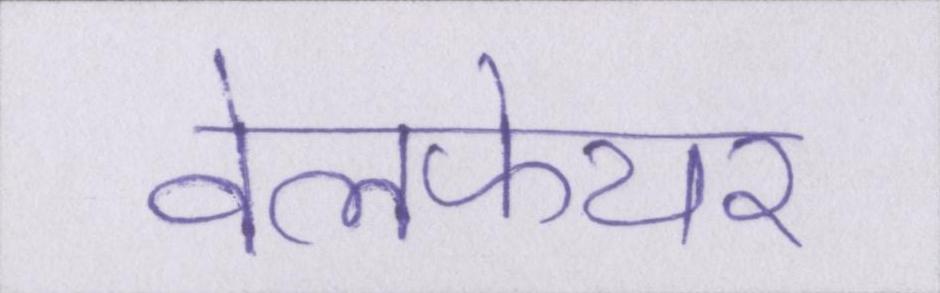 वेलफेयर